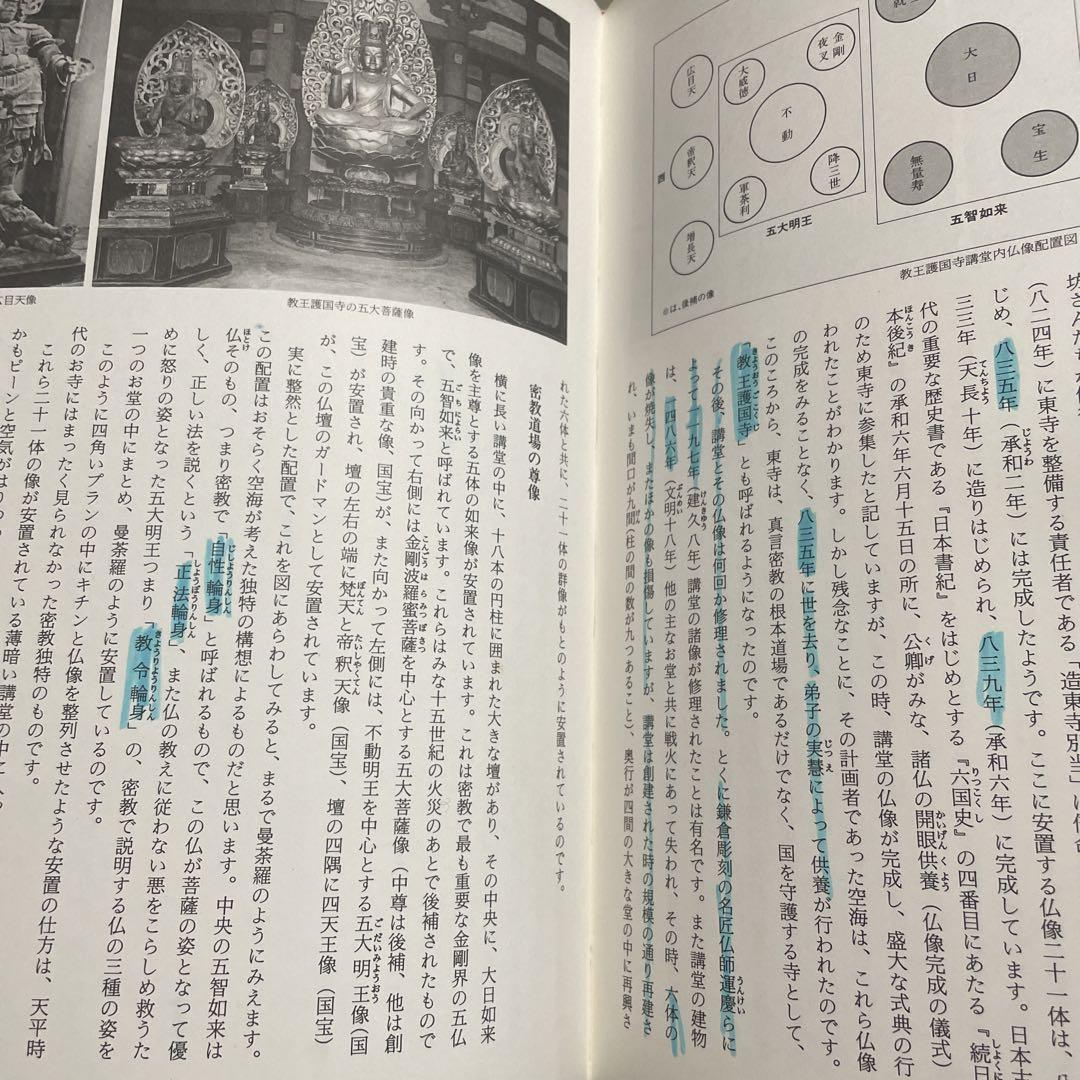 就
大日
宝生
無量寿
五智如来
金剛夜叉
大威徳
不動
降三世
軍茶利
五大明王
広目天
帝釈天
増長天
西
教王護国寺講堂内仏像配置図
◎は、後補の像
（八二四年）に東寺を整備する責任者である「造東寺別当」に
じめ、八三五年（承和二年）には完成したようです。ここに安置する仏像二十一体は、
三三年（天長十年）に造りはじめられ、八三九年（承和六年）に完成しています。日本
代の重要な歴史書である『日本書紀』をはじめとする『六国史』の四番目にあたる『続日
本後紀』の承和六年六月十五日の所に、公卿がみな、諸仏の開眼供養（仏像完成の儀式）
のため東寺に参集したと記していますが、この時、講堂の仏像が完成し、盛大な式典の行
われたことがわかります。しかし残念なことに、その計画者であった空海は、これら仏像
の完成をみることなく、八三五年に世を去り、弟子の実慧によって供養が行われたのです。
このころから、東寺は、真言密教の根本道場であるだけでなく、国を守護する寺として、
「教王護国寺」とも呼ばれるようになったのです。
その後、講堂とその仏像は何回か修理されました。とくに鎌倉彫刻の名匠仏師運慶らに
よって一一九七年（建久八年）講堂の諸像が修理されたことは有名です。また講堂の建物
は、一四八六年（文明十八年）他の主なお堂と共に戦火にあって失われ、その時、六体の
像が焼失し、またほかの像も損傷していますが、講堂は創建された時の規模の通り再建さ
れ、いまも間口が九間（柱の間の数が九つあること）、奥行が四間の大きな堂の中に再興さ
れた六体と共に、二十一体の群像がもとのように安置されているのです。
広目天像
教王護国寺の五大菩薩像
密教道場の尊像
横に長い講堂の中に、十八本の円柱に囲まれた大きな壇があり、その中央に、大日如来
像を主尊とする五体の如来像が安置されています。これは密教で最も重要な金剛界の五仏
で、五智如来と呼ばれています。これらはみな十五世紀の火災のあとで後補されたもので
す。その向かって右側には金剛波羅蜜菩薩を中心とする五大菩薩像（中尊は後補、他は創
建時の貴重な像、国宝）が、また向かって左側には、不動明王を中心とする五大明王像（国
宝）が安置され、壇の左右の端に梵天と帝釈天像（国宝）、壇の四隅に四天王像（国宝）
が、この仏壇のガードマンとして安置されています。
実に整然とした配置で、これを図にあらわしてみると、まるで曼荼羅のようにみえます。
この配置はおそらく空海が考えた独特の構想によるものだと思います。中央の五智如来は
仏そのもの、つまり密教で「自性輪身」と呼ばれるもので、この仏が菩薩の姿となって優
しく、正しい法を説くという「正法輪身」、また仏の教えに従わない悪をこらしめ救うた
めに怒りの姿となった五大明王つまり「教令輪身」の、密教で説明する仏の三種の姿を
一つのお堂の中にまとめ、曼荼羅のように安置しているのです。
このように四角いプランの中にキチンと仏像を整列させたような安置の仕方は、天平時
代のお寺にはまったく見られなかった密教独特のものです。
これら二十一体の像が安置されている薄暗い講堂の中に
かもピーンと空気が